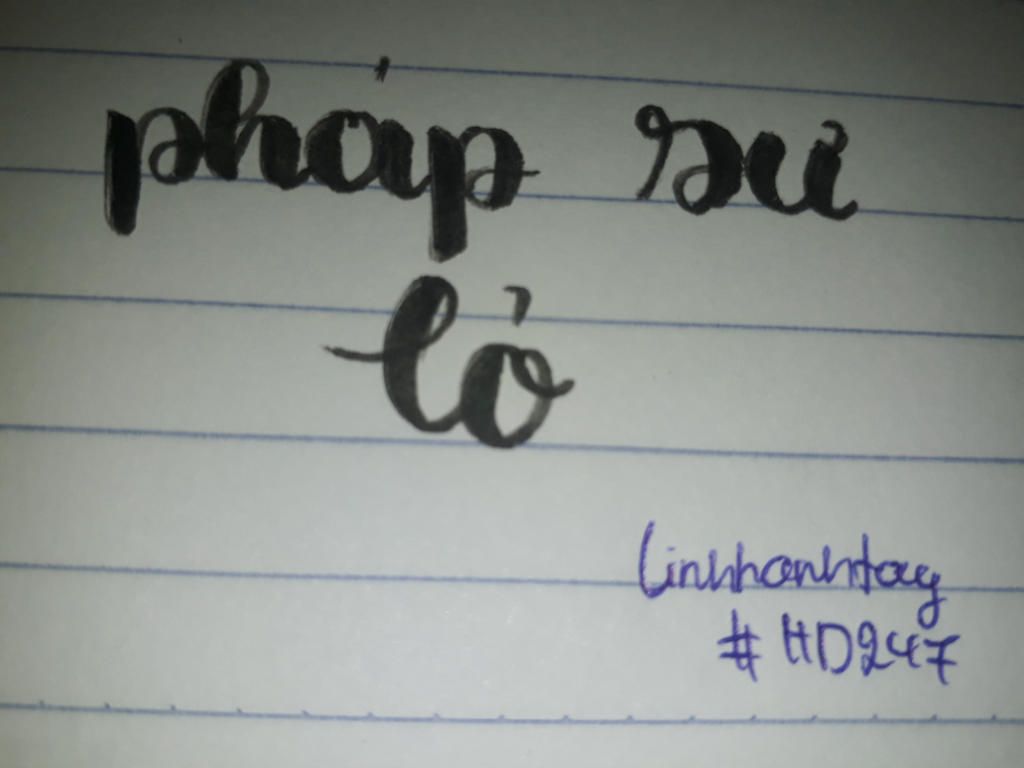 pháp sư
lỏ
linhhanhtay
#HD247